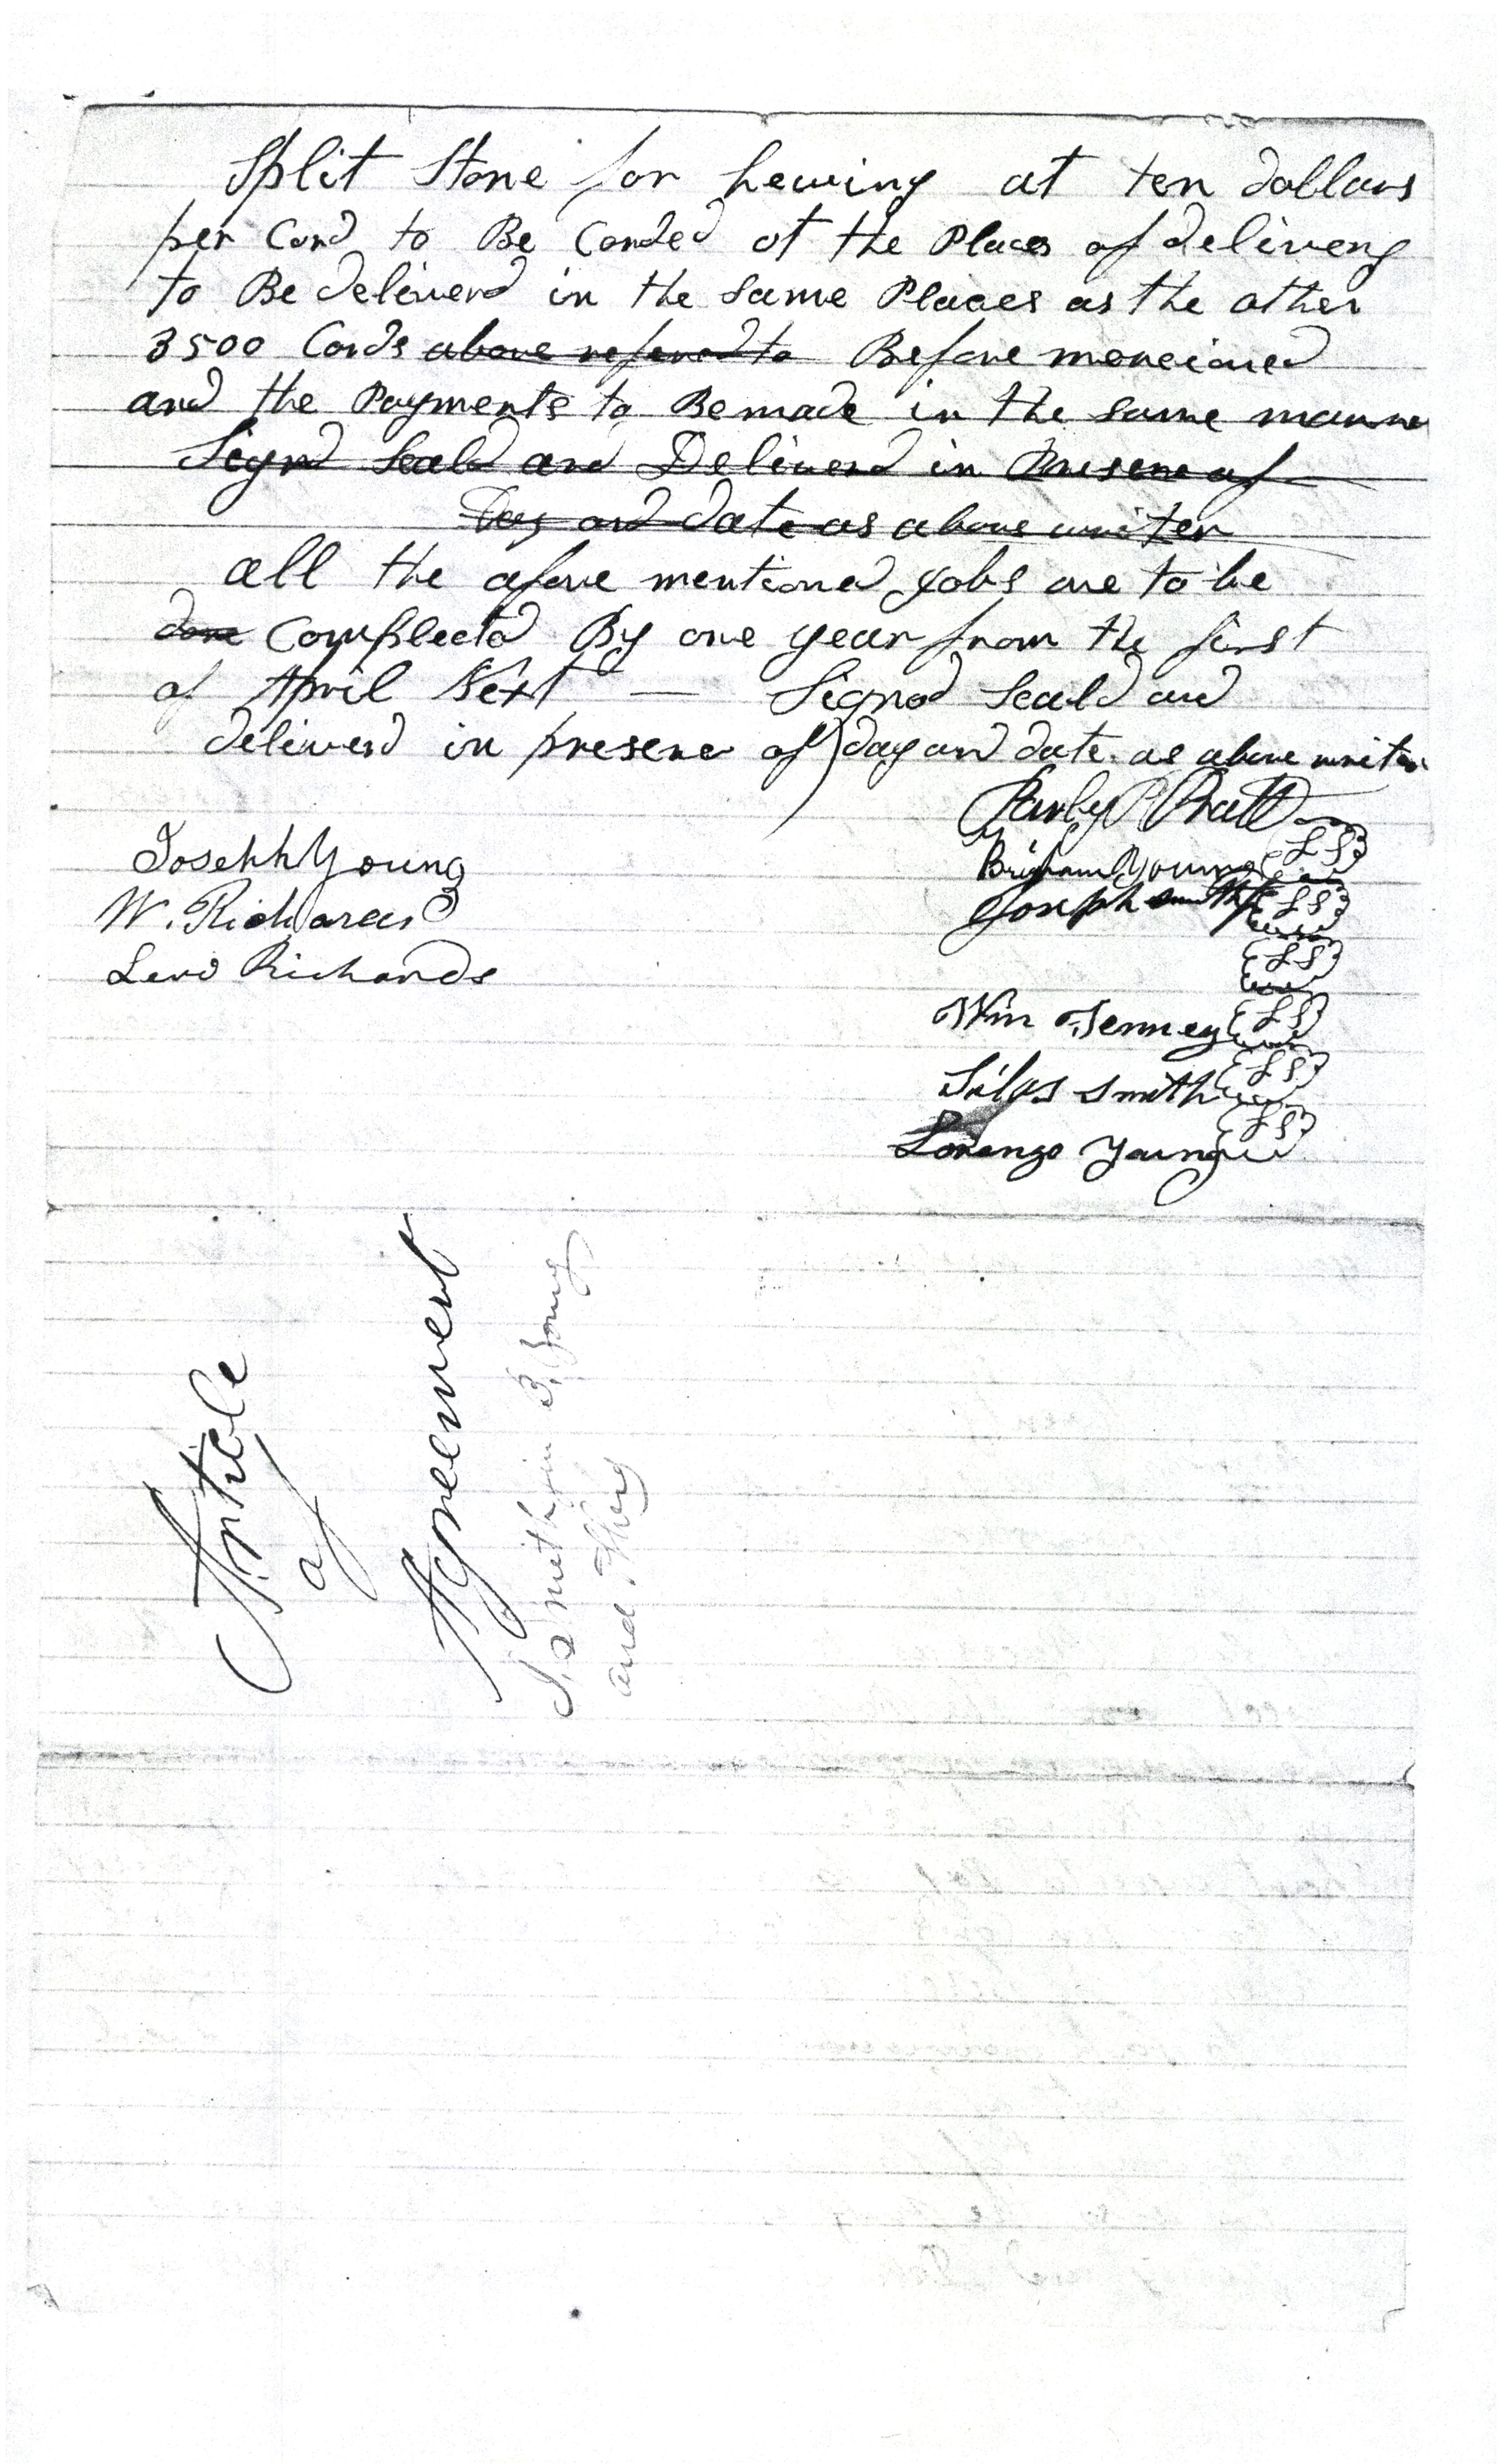 Split Stone for hewing at ten dollars
per Cord to Be Corded at the Places of delivery
to Be deliverd in the same Places as the other
3500 Cords above referred to Before moncioned
and the Payments to Be made in the same manner
Signd Seald and Deliverd in Presence of
Day and date as above writen
all the afore mentioned Jobs are to be
done Complected By one year from the first
of April Next — Signed Seald and
deliverd in presence of) day and date as above writen
Parley P Pratt
Joseph Young
Brigham Young {LS}
W. Richards
Joseph Smith Jr {LS}
Levi Richards
{LS}
Wm Tenney {LS}
Silas Smith {LS}
Lorenzo Young {LS}
Article
of
Agreement
and others